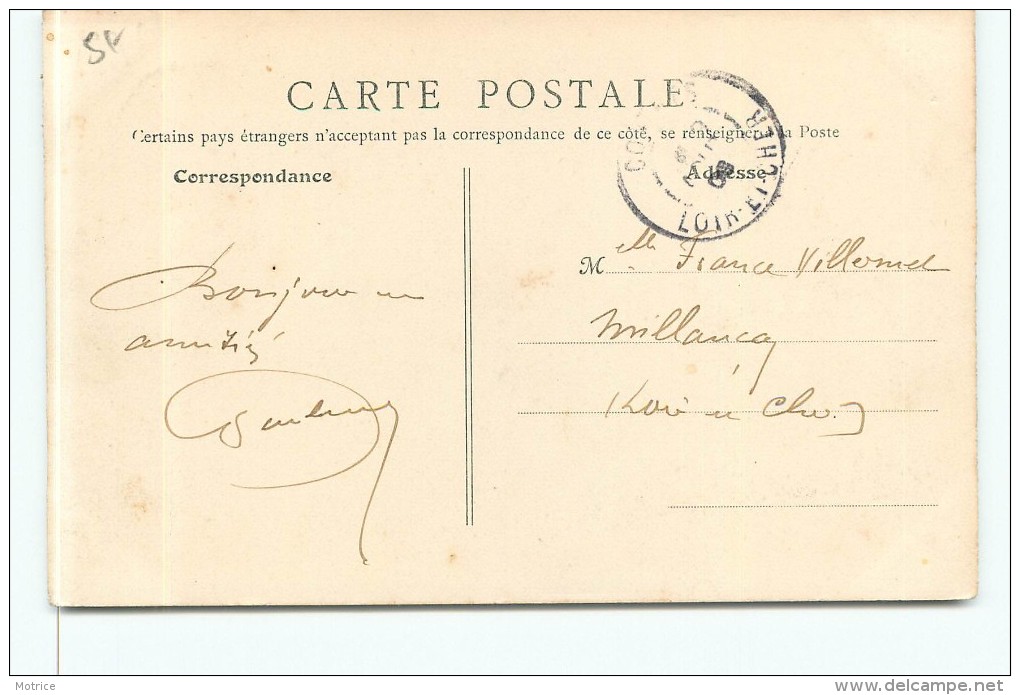 CARTE POSTALE
Certains pays étrangers n'acceptant pas la correspondance de ce côté, se renseigner à la Poste
Correspondance
Adresse
LOIR-ET-CHER
Bonjour et
amitiés
Melle France Villemet
Millançay
Loir et Cher
Motrice
delcampe.net